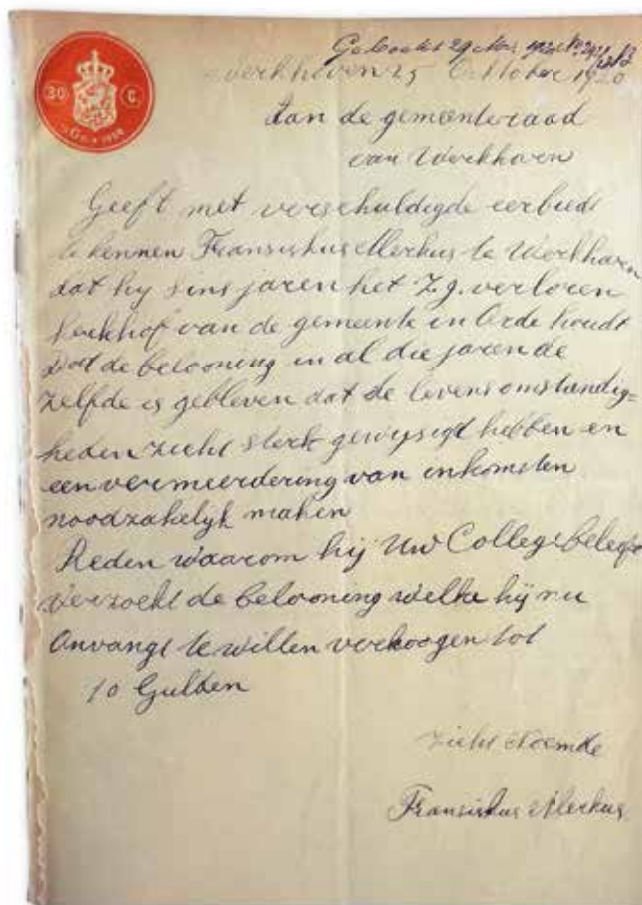 Werkhoven 25 Octtober 1920
Aan de gemeenteraad
van Werkhoven
Geeft met verschuldigde eerbied
te kennen Fransiskus Merkus te Werkhoven
dat hy sins jaren het Z.g. verloren
kerkhof van de gemeente in Orde houdt
dat de belooning in al die jaren de
zelfde is gebleven dat de levensomstandig=
heden zicht sterk gewysigt hebben en
een vermeerdering van inkomsten
noodzakelyk maken
Reden waarom hij Uw College beleefd
verzoekt de belooning welke hij nu
Onvangt te willen verhoogen tot
10 Gulden
zicht Noemde
Fransiskus Merkus
30 C